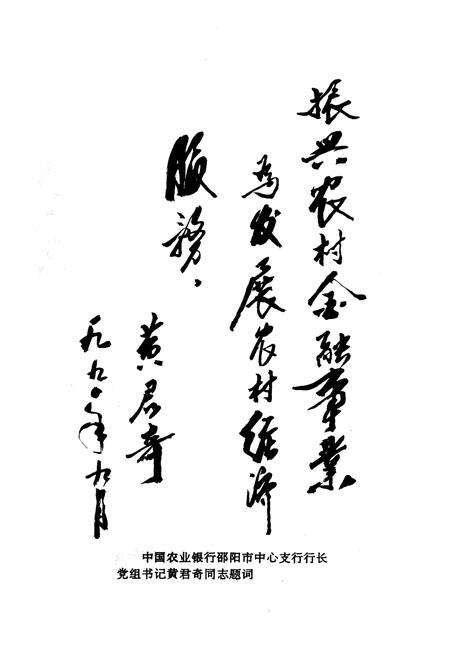 振兴农村金融事业
为发展农村经济
服务。
黄君奇
一九九〇年九月
中国农业银行邵阳市中心支行行长
党组书记黄君奇同志题词